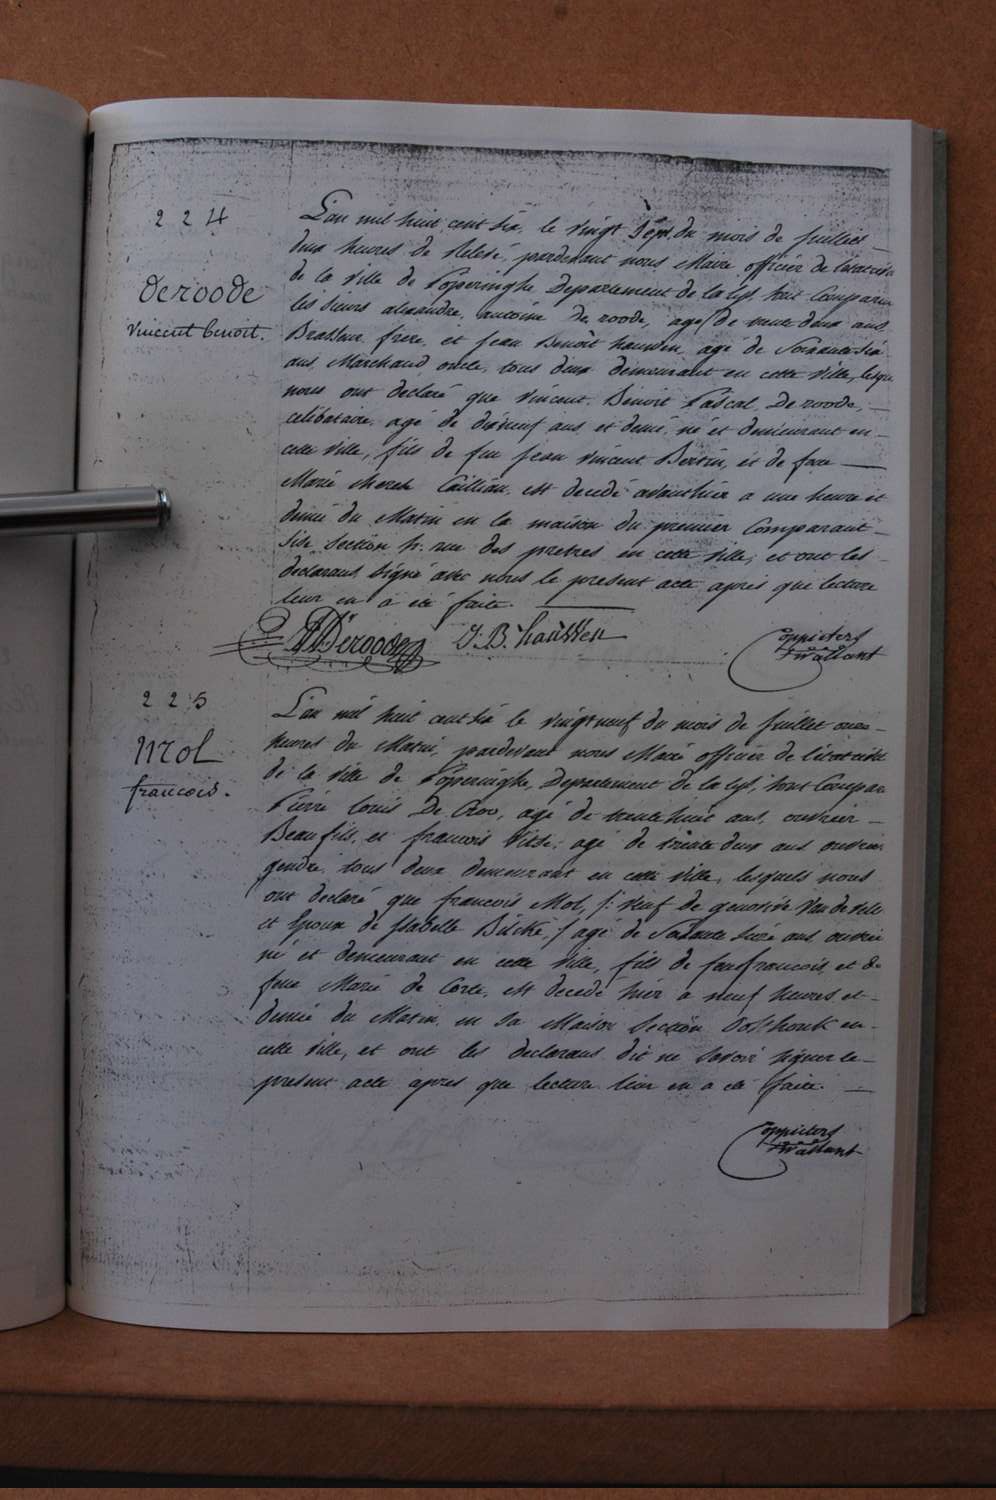 224
deroode
vincent benoit.
L'an mil huit cent six, le vingt sept du mois de juillet
deux heures de relevé, pardevant nous Maire officier de l'état civil
de la ville de Poperinghe Departement de la lys, sont Comparu
les sieurs alexandre antoine de roode, agé de trente deux ans
Brasseur frere, et jean Benoit haussen agé de Soixante six
ans, Marchand oncle, tous deux demeurant en cette ville, lesqu
nous ont declaré que vincent Benoit Pascal De roode,
celibataire, agé de dixneuf ans et demi, né et demeurant en
cette ville, fils de feu jean vincent Bertin, et de feue
Marie therese Caillian, est decedé avanthier a une heure et
demie du Matin en la maison du premier Comparant
Sise Section h: rue des pretres en cette ville; et ont les
declarans signé avec nous le present acte après que lecture
leur en a été faite.
Deroode J. B. haussen Coppieters Wallant
225
Mol
francois.
L'an mil huit cent six le vingt neuf du mois de juillet onze
heures du Matin, pardevant nous Maire officier de l'état civil
de la ville de Poperinghe, Departement de la lys, sont Compar
Pierre Louis De Croo, agé de trente huit ans, ouvrier
Beaufils, et francois Visse, agé de trente deux ans ouvrier
gendre, tous deux demeurant en cette ville, lesquels nous
ont declaré que francois Mol, /: veuf de genovive Van de Vile
et Epoux de Isabelle Bilcke, / agé de Soixante seize ans, ouvrier
né et demeurant en cette ville, fils de feu francois, et de
feue Marie de Corte, est decedé hier a neuf heures et
demie du Matin, en sa Maison Section Oosthouk en
cette ville, et ont les declarans dit ne savoir signer le
present acte apres que lecture leur en a été faite.
Coppieters Wallant